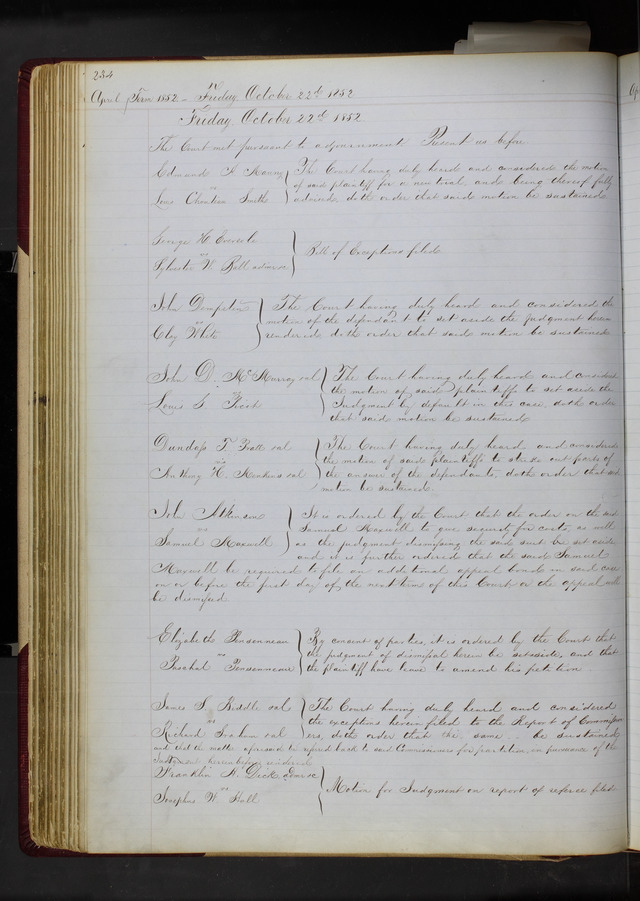 234
April Term 1852 - Friday October 22d 1852
Friday October 22d 1852
The Court met pursuant to adjournment Present as before
Edmund F. Manny
vs
Louis Christian Smith
The Court having duly heard and considered the motion
of said plaintiff for a new trial and being thereof fully
advised doth order that said motion be sustained
George H.
vs
Sylvester W. Ball admr
Bill of Exceptions filed
John Dempsten
vs
Clay White
The Court having duly heard and considered the
motion of the defendant to set aside the judgment herein
rendered doth order that said motion be sustained
John D. McMurray et al
vs
Louis G. Picot
The Court having duly heard and considered
the motion of said plaintiffs to set aside the
Judgment by default in this case doth order
that said motion be sustained
Dunlap T. Pratt et al
vs
Anthony H. et al
The Court having duly heard and considered
the motion of said plaintiffs to strike out parts of
the answer of the defendants, doth order that said
motion be sustained
John Atkinson
vs
Samuel Maxwell
It is ordered by the Court that the order on the said
Samuel Maxwell to give security for costs, as well
as the judgment dismissing the said suit be set aside
and it is further ordered that the said Samuel
Maxwell be required to file an additional appeal bond in said case
on or before the first day of the next term of this Court or the appeal will
be dismissed
Elizabeth Ponsonneau
vs
Paschal Ponsonneau
By consent of parties, it is ordered by the Court that
the judgment of dismissal herein be set aside, and that
the plaintiff have leave to amend his petition
James S. Biddle et al
vs
Richard Graham et al
The Court having duly heard and considered
the exceptions herein filed to the Report of Commission
ers, doth order that the same be sustained
and that the matter aforesaid be referred back to said Commissioners for partition, in pursuance of the
Judgment hereinbefore rendered
Franklin A. Dick admr
vs
Josephus W. Hall
Motion for Judgment on report of referee filed